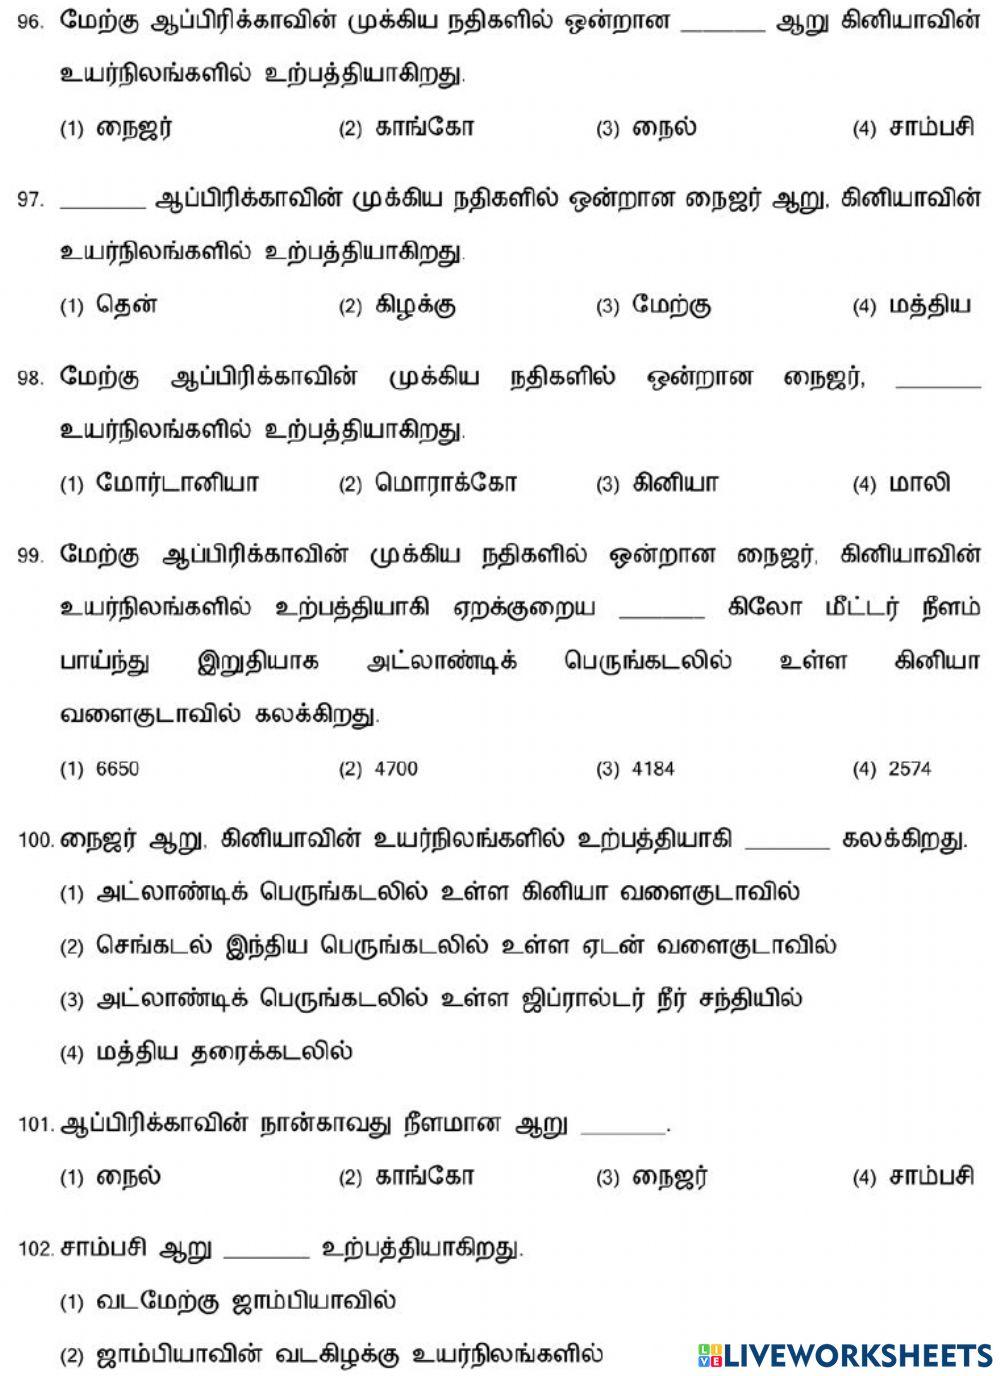 96. மேற்கு ஆப்பிரிக்காவின் முக்கிய நதிகளில் ஒன்றான ______ ஆறு கினியாவின்
உயர்நிலங்களில் உற்பத்தியாகிறது.
(1) நைஜர் (2) காங்கோ (3) நைல் (4) சாம்பசி
97. ______ ஆப்பிரிக்காவின் முக்கிய நதிகளில் ஒன்றான நைஜர் ஆறு, கினியாவின்
உயர்நிலங்களில் உற்பத்தியாகிறது.
(1) தென் (2) கிழக்கு (3) மேற்கு (4) மத்திய
98. மேற்கு ஆப்பிரிக்காவின் முக்கிய நதிகளில் ஒன்றான நைஜர், ______
உயர்நிலங்களில் உற்பத்தியாகிறது.
(1) மோர்டானியா (2) மொராக்கோ (3) கினியா (4) மாலி
99. மேற்கு ஆப்பிரிக்காவின் முக்கிய நதிகளில் ஒன்றான நைஜர், கினியாவின்
உயர்நிலங்களில் உற்பத்தியாகி ஏறக்குறைய ______ கிலோ மீட்டர் நீளம்
பாய்ந்து இறுதியாக அட்லாண்டிக் பெருங்கடலில் உள்ள கினியா
வளைகுடாவில் கலக்கிறது.
(1) 6650 (2) 4700 (3) 4184 (4) 2574
100. நைஜர் ஆறு, கினியாவின் உயர்நிலங்களில் உற்பத்தியாகி ______ கலக்கிறது.
(1) அட்லாண்டிக் பெருங்கடலில் உள்ள கினியா வளைகுடாவில்
(2) செங்கடல் இந்திய பெருங்கடலில் உள்ள ஏடன் வளைகுடாவில்
(3) அட்லாண்டிக் பெருங்கடலில் உள்ள ஜிப்ரால்டர் நீர் சந்தியில்
(4) மத்திய தரைக்கடலில்
101. ஆப்பிரிக்காவின் நான்காவது நீளமான ஆறு ______.
(1) நைல் (2) காங்கோ (3) நைஜர் (4) சாம்பசி
102. சாம்பசி ஆறு ______ உற்பத்தியாகிறது.
(1) வடமேற்கு ஜாம்பியாவில்
(2) ஜாம்பியாவின் வடகிழக்கு உயர்நிலங்களில்
LIVE LIVEWORKSHEETS